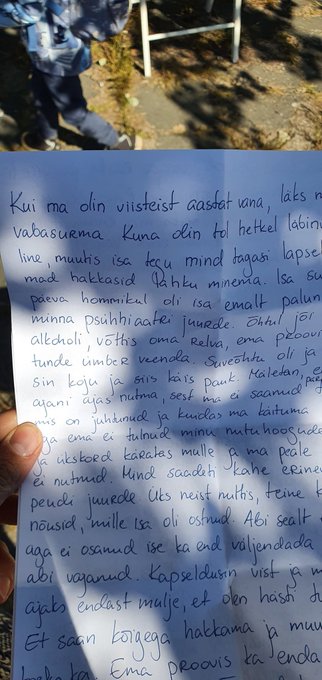 Kui ma olin viisteist aastat vana, läks
vabasurma. Kuna olin tol hetkel läbinu
line, muutis isa tegu mind tagasi lapse
mad hakkasid lahku minema. Isa su
päeva hommikul oli isa emalt palun
minna psühhiaatri juurde. Õhtul jõi
alkoholi, võttis oma relva, ema proovi
tunde ümber veenda. Suveõhtu oli ja
sin koju ja siis käis pauk. Mäletan, e
ajani ajas nutma, sest ma ei saanud
mis on juhtunud ja kuidas ma käituma
ga ema ei tulnud minu nutuhoogude
ja ükskord karatas mulle ja ma peale
ei nutnud. Mind saadeti kahe erine
peudi juurde. Üks neist nuttis, teine k
nõusid, mille isa oli ostnud. Abi sealt
aga ei osanud ise ka end väljendada
abi vajanud. Kapseldusin vist ja m
ajaks endast mulje, et olen hästi tu
Et saan kõigega hakkama ja muu
Ema proovis ka enda